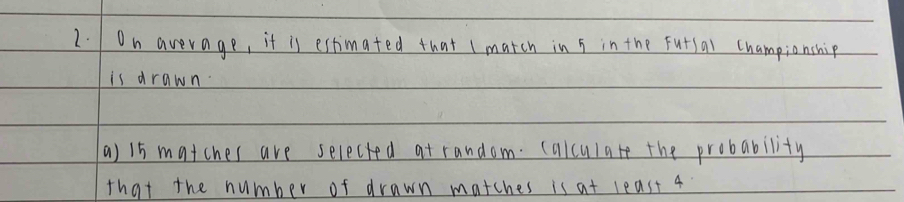 2. On average, it is estimated that 1 match in 5 in the Futsal Championship
is drawn.
a) 15 matches are selected at random. Calculate the probability
that the number of drawn matches is at least 4.